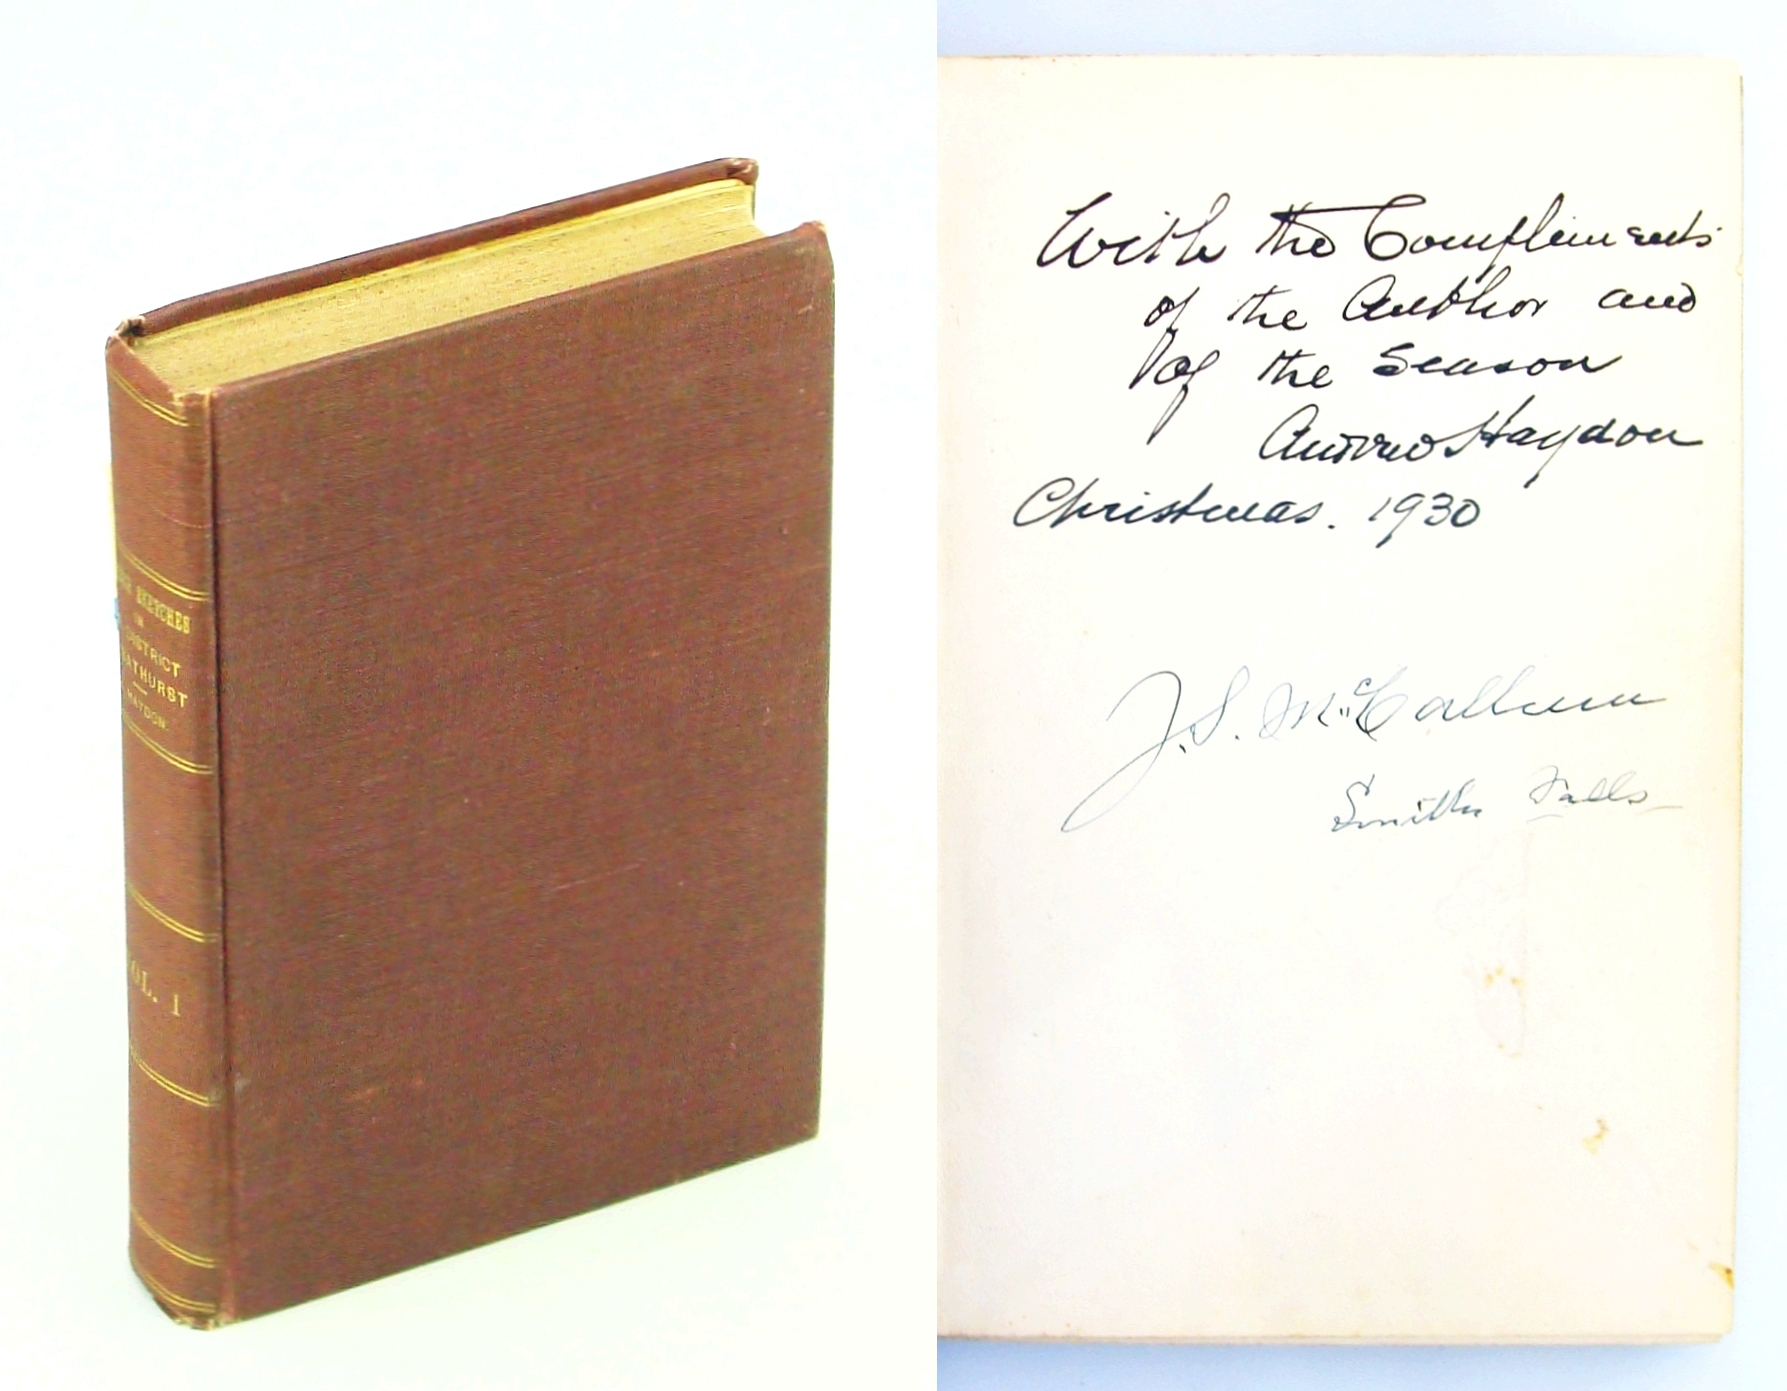 SKETCHES
IN
DISTRICT
BATHURST
HAYDON
VOL. 1
With the Compliments
of the Author and
of the Season
Andrew Haydon
Christmas. 1930
J. S. McCallum
Smiths Falls